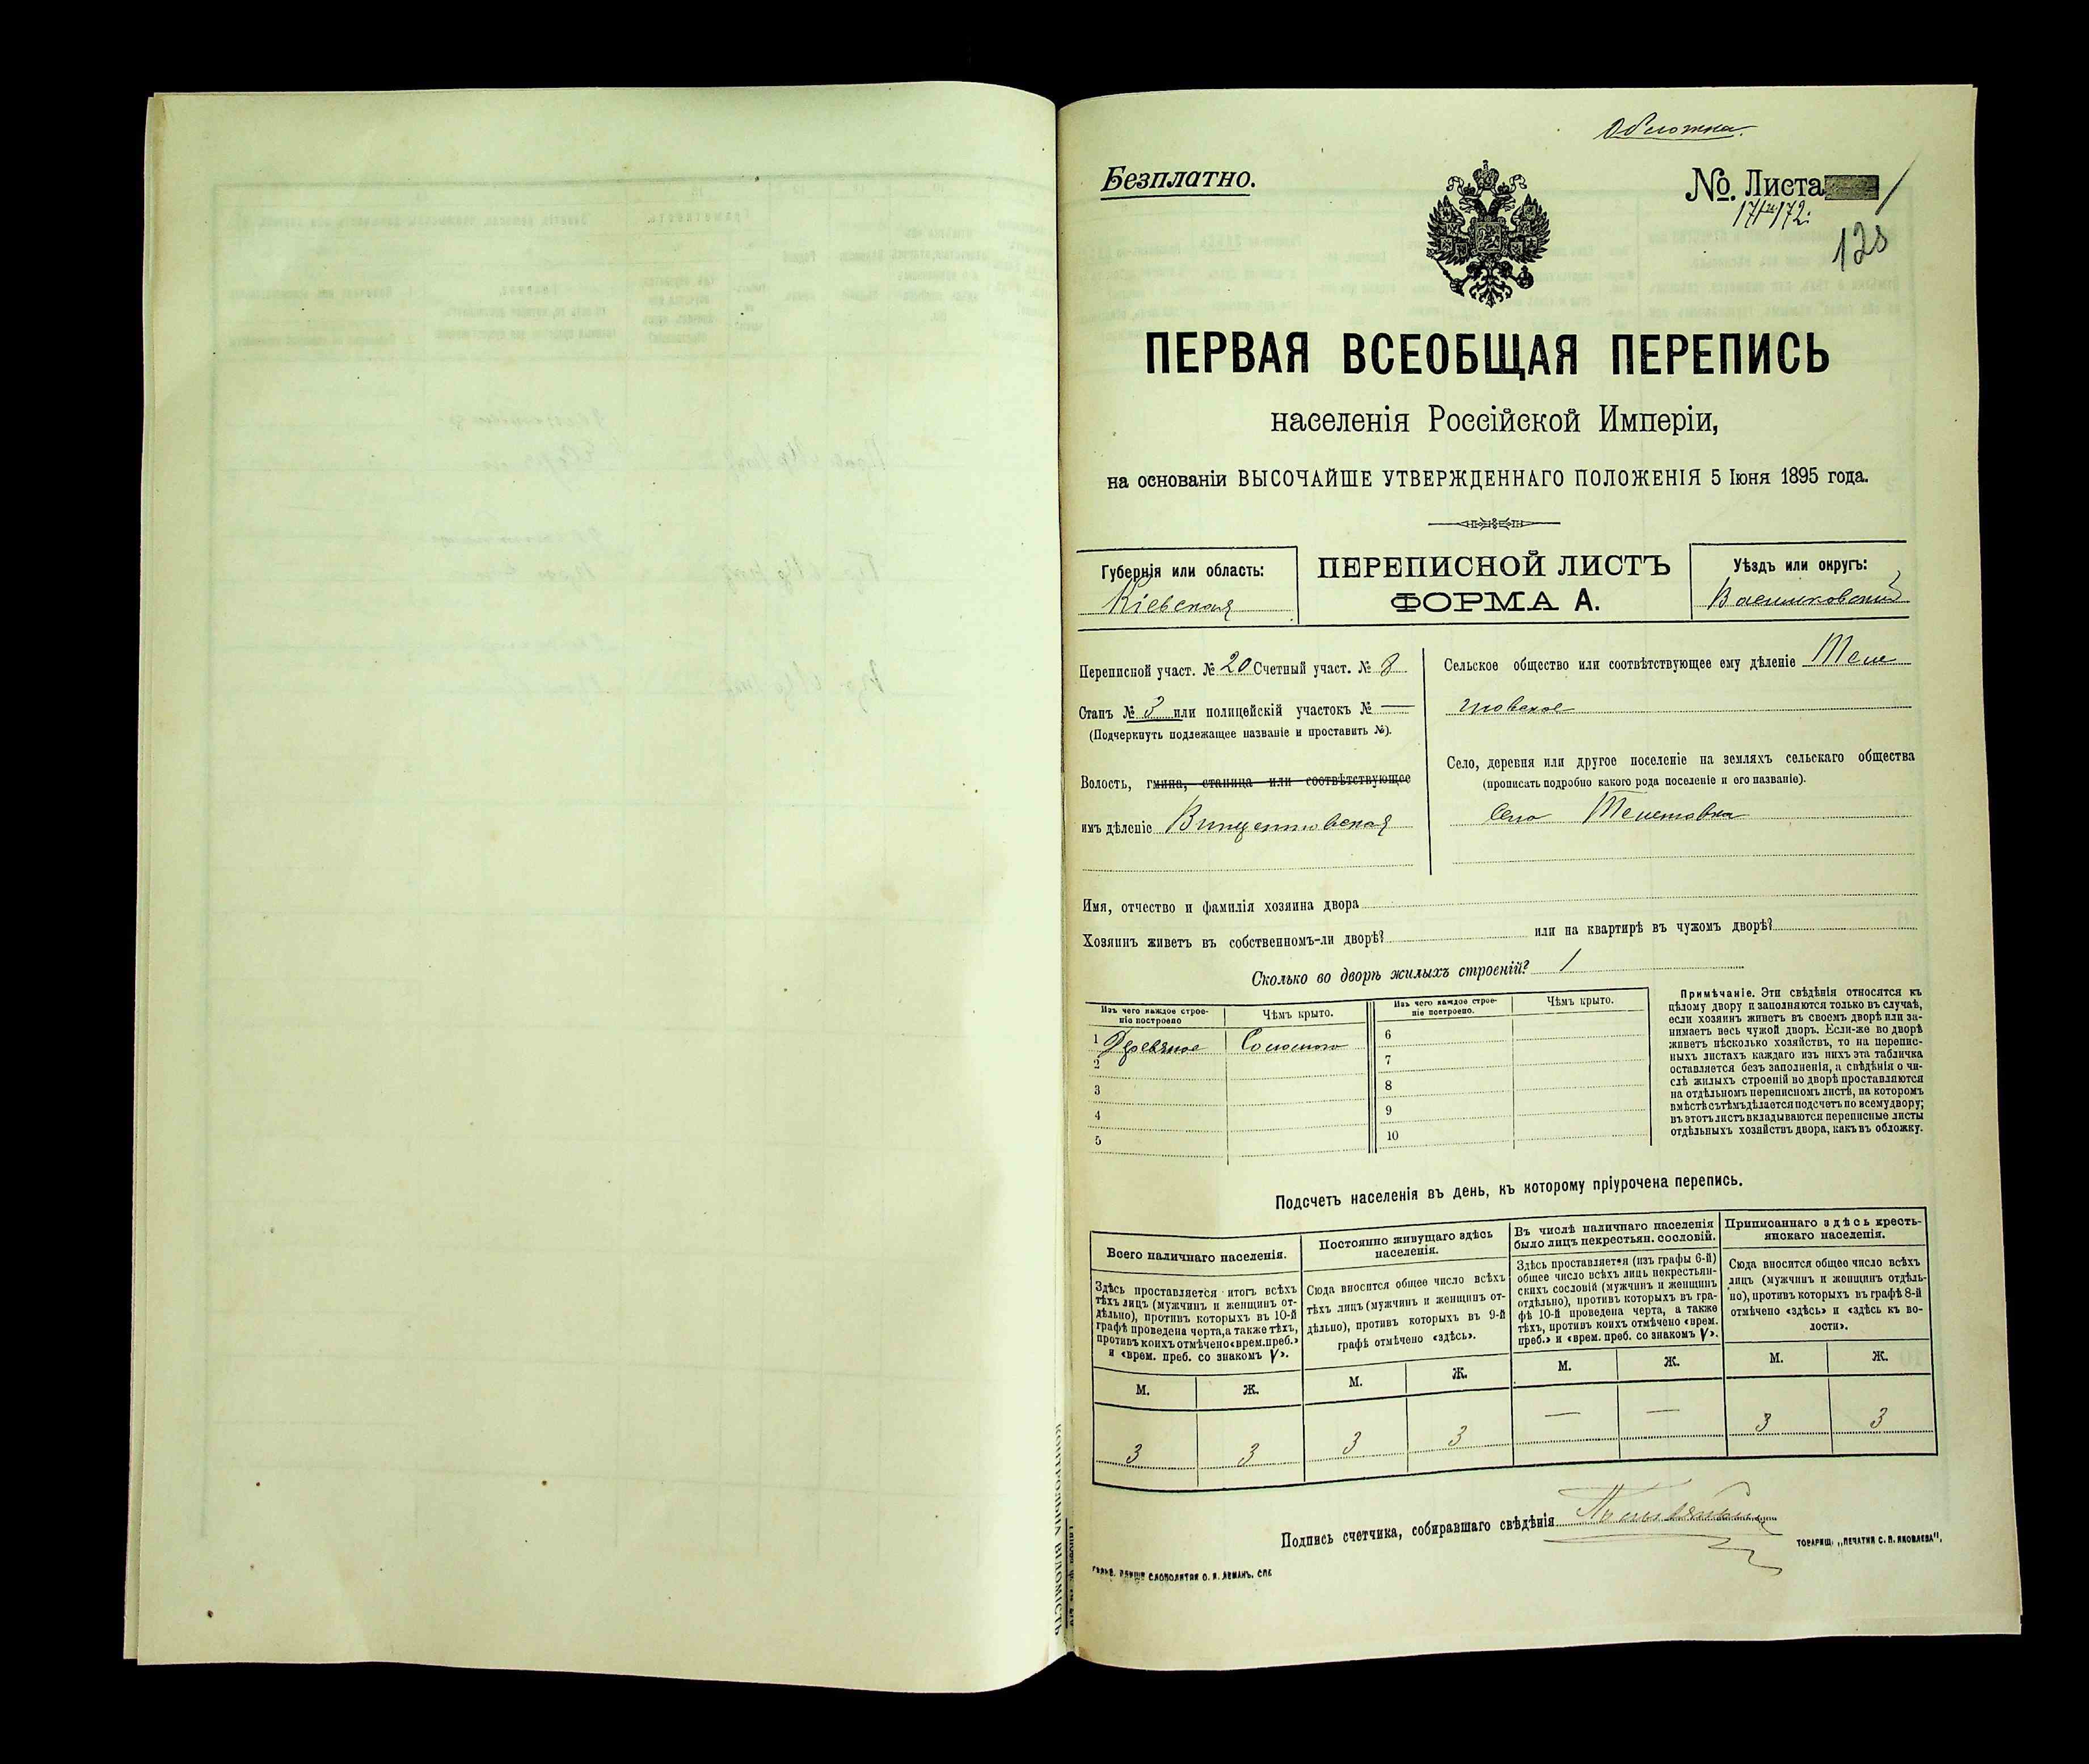 Обложка.
Безплатно.
№. Листа
171 и 172.
128
ПЕРВАЯ ВСЕОБЩАЯ ПЕРЕПИСЬ
населенія Россійской Имперіи,
на основаніи ВЫСОЧАЙШЕ УТВЕРЖДЕННАГО ПОЛОЖЕНІЯ 5 Іюня 1895 года.
Губернія или область:
Кіевская
ПЕРЕПИСНОЙ ЛИСТЪ
ФОРМА А.
Уѣздъ или округъ:
Васильковскій
Переписной участ. № 20 Счетный участ. № 8
Станъ № 3 или полицейскій участокъ № —
(Подчеркнуть подлежащее названіе и проставить №).
Волость, гмина, станица или соотвѣтствующее
имъ дѣленіе Винцентовская
Сельское общество или соотвѣтствующее ему дѣленіе Теле
шовское
Село, деревня или другое поселеніе на земляхъ сельскаго общества
(прописать подробно какого рода поселеніе и его названіе).
Село
Имя, отчество и фамилія хозяина двора
Хозяинъ живетъ въ собственномъ-ли дворѣ? или на квартирѣ въ чужомъ дворѣ?
Сколько во дворѣ жилыхъ строеній? 1
Изъ чего каждое строе-
ніе построено
Чѣмъ крыто.
Изъ чего каждое строе-
ніе построено.
Чѣмъ крыто.
1 Деревяное Соломою
2
3
4
5
6
7
8
9
10
Примѣчаніе. Эти свѣдѣнія относятся къ
цѣлому двору и заполняются только въ случаѣ,
если хозяинъ живетъ въ своемъ дворѣ или за-
нимаетъ весь чужой дворъ. Если-же во дворѣ
живетъ нѣсколько хозяйствъ, то на перепис-
ныхъ листахъ каждаго изъ нихъ эта табличка
оставляется безъ заполненія, а свѣдѣнія о чи-
слѣ жилыхъ строеній во дворѣ проставляются
на отдѣльномъ переписномъ листѣ, на которомъ
вмѣстѣ съ тѣмъ дѣлается подсчетъ по всему двору;
въ этотъ листъ вкладываются переписные листы
отдѣльныхъ хозяйствъ двора, какъ въ обложку.
Подсчетъ населенія въ день, къ которому пріурочена перепись.
Всего наличнаго населенія.
Здѣсь проставляется итогъ всѣхъ
тѣхъ лицъ (мужчинъ и женщинъ от-
дѣльно), противъ которыхъ въ 10-й
графѣ проведена черта, а также тѣхъ,
противъ коихъ отмѣчено «врем. преб.»
и «врем. преб. со знакомъ V».
Постоянно живущаго здѣсь
населенія.
Сюда вносится общее число всѣхъ
тѣхъ лицъ (мужчинъ и женщинъ от-
дѣльно), противъ которыхъ въ 9-й
графѣ отмѣчено «здѣсь».
Въ числѣ наличнаго населенія
было лицъ некрестьян. сословій.
Здѣсь проставляется (изъ графы 6-й)
общее число всѣхъ лицъ некрестьян-
скихъ сословій (мужчинъ и женщинъ
отдѣльно), противъ которыхъ въ гра-
фѣ 10-й проведена черта, а также
тѣхъ, противъ коихъ отмѣчено «врем.
преб.» и «врем. преб. со знакомъ V».
Приписаннаго здѣсь кресть-
янскаго населенія.
Сюда вносится общее число всѣхъ
лицъ (мужчинъ и женщинъ отдѣль-
но), противъ которыхъ въ графѣ 8-й
отмѣчено «здѣсь» и «здѣсь къ во-
лости».
М. Ж. М. Ж. М. Ж. М. Ж.
3 3 3 3 — — 3 3
Подпись счетчика, собиравшаго свѣдѣнія
ТОВАРИЩ. „ПЕЧАТНЯ С. П. ЯКОВЛЕВА",